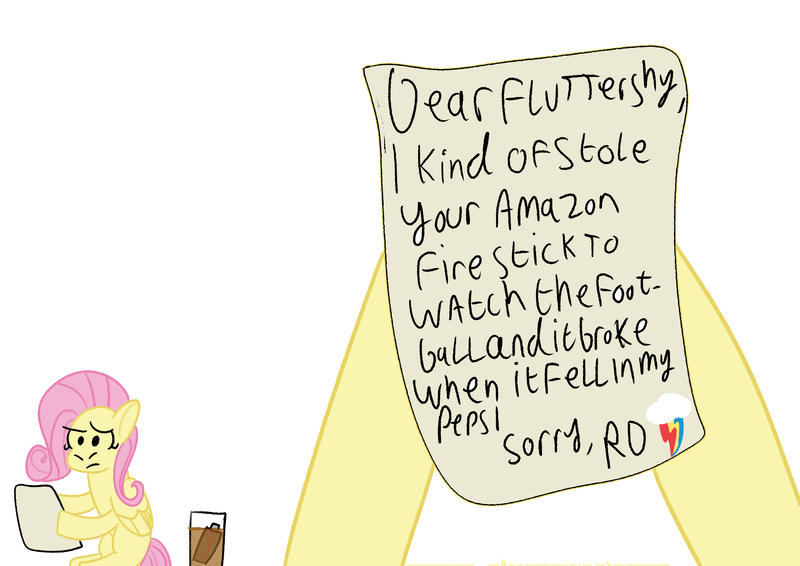 Dear Fluttershy,
I kind of stole
your Amazon
Fire Stick to
watch the foot-
ball and it broke
when it fell in my
Pepsi
sorry, RD